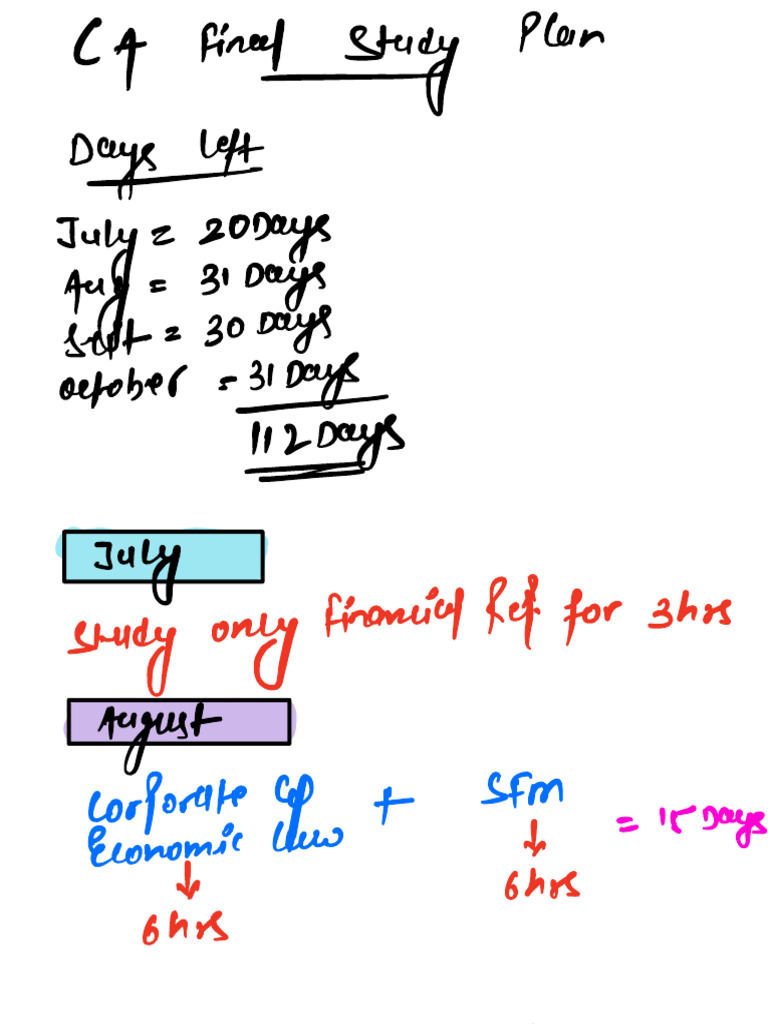 CA final Study Plan
Days left
July = 20 Days
Aug = 31 Days
Sept = 30 Days
October = 31 Days
112 Days
July
Study only financial Ref for 3 hrs
August
Corporate & Economic law + SFM = 15 Days
6 hrs 6 hrs